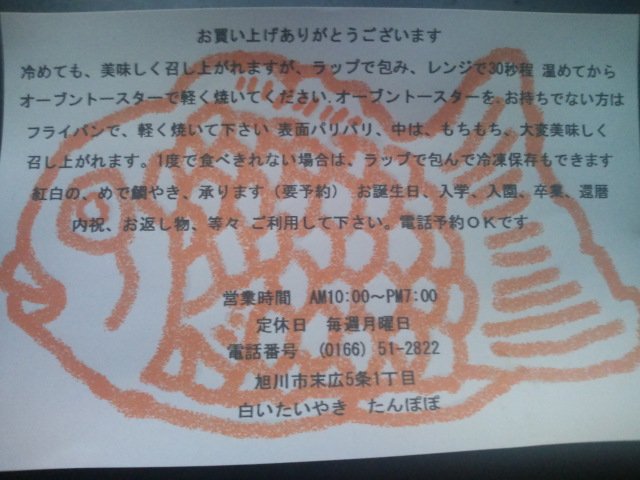 お買い上げありがとうございます
冷めても、美味しく召し上がれますが、ラップで包み、レンジで30秒程 温めてから
オーブントースターで軽く焼いてください.オーブントースターを、お持ちでない方は
フライパンで、軽く焼いて下さい 表面パリパリ、中は、もちもち、大変美味しく
召し上がれます。1度で食べきれない場合は、ラップで包んで冷凍保存もできます
紅白の、めで鯛やき、承ります（要予約） お誕生日、入学、入園、卒業、還暦
内祝、お返し物、等々 ご利用して下さい。電話予約ＯＫです
営業時間 AM10:00～PM7:00
定休日 毎週月曜日
電話番号 (0166) 51-2822
旭川市末広5条1丁目
白いたいやき たんぽぽ